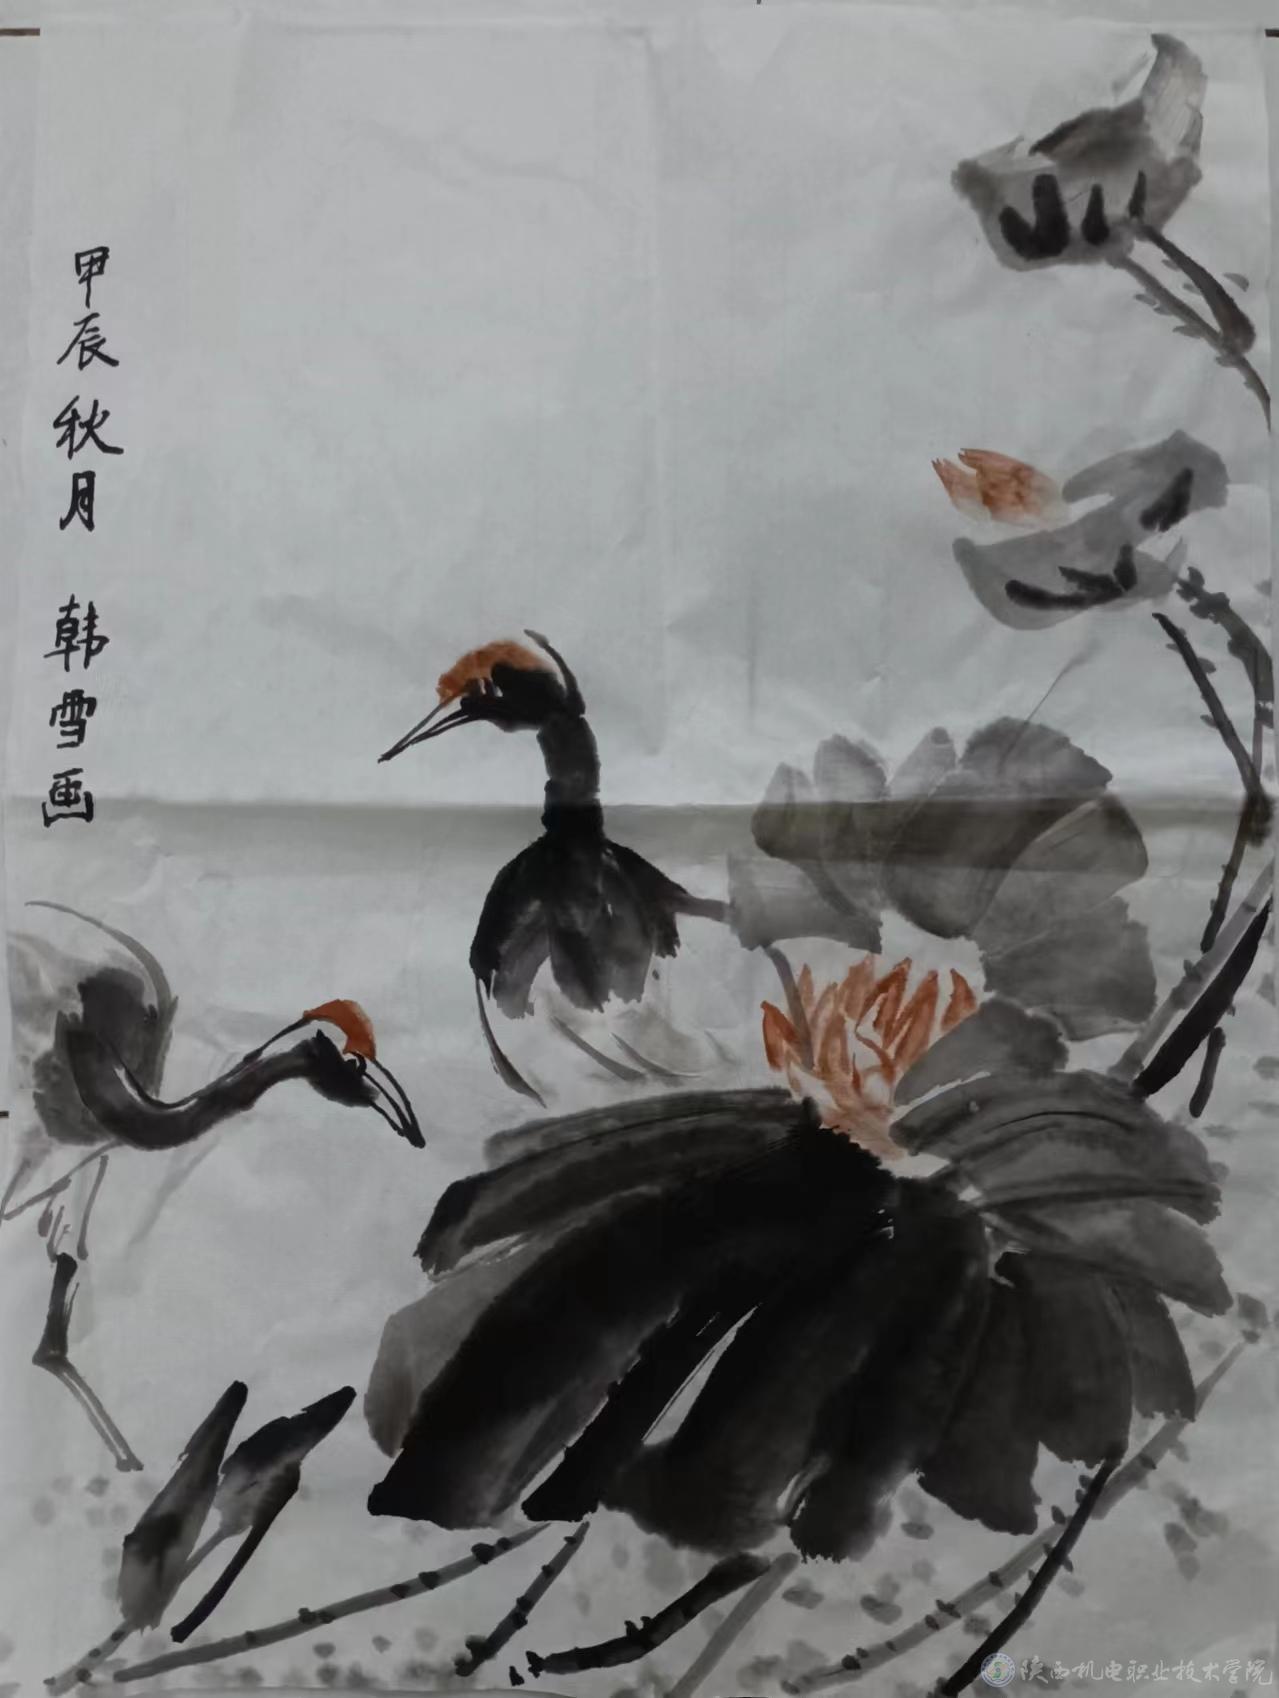 甲辰秋月 韩雪画
陕西机电职业技术学院